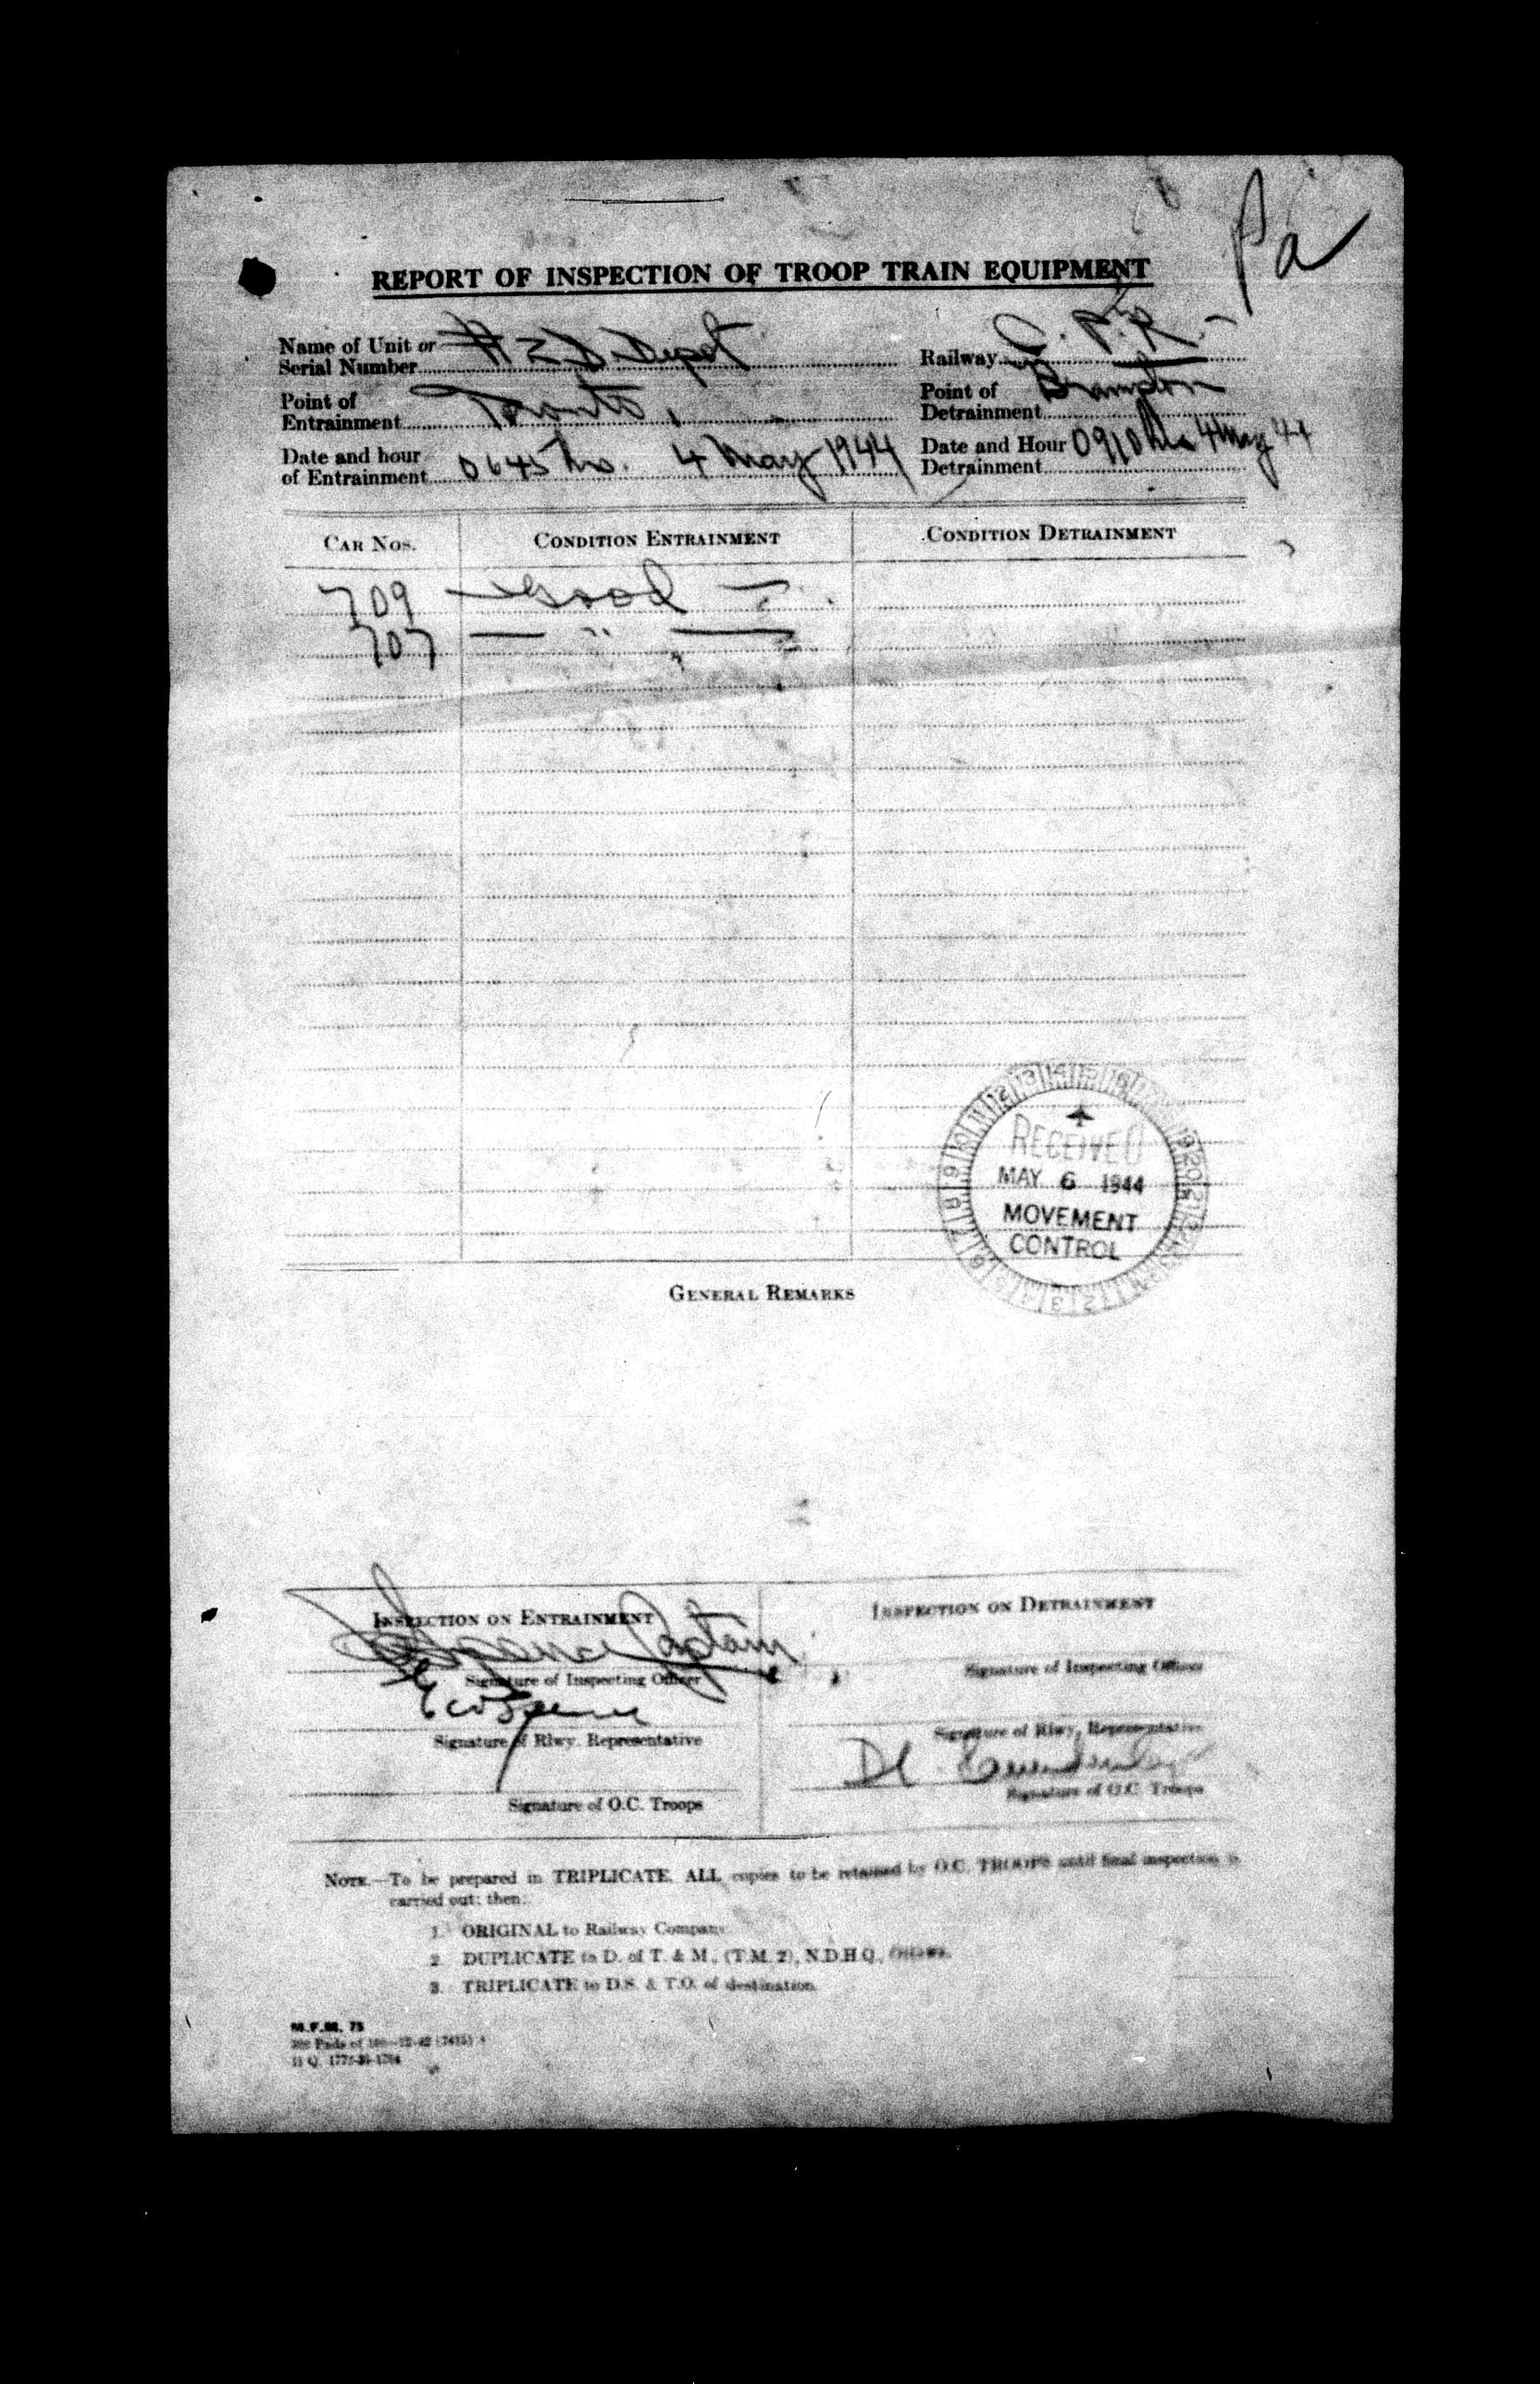 Pa
REPORT OF INSPECTION OF TROOP TRAIN EQUIPMENT
Name of Unit or Serial Number # 2 D Depot
Railway C. P. R.
Point of Entrainment Toronto,
Point of Detrainment Brampton
Date and hour of Entrainment 0645 hrs. 4 May 1944
Date and Hour Detrainment 0910 hrs 4 May 44
CAR NOS. CONDITION ENTRAINMENT CONDITION DETRAINMENT
709 — Good —
707 — " —
RECEIVED
MAY 6 1944
MOVEMENT
CONTROL
GENERAL REMARKS
INSPECTION ON ENTRAINMENT
INSPECTION ON DETRAINMENT
Captain
Signature of Inspecting Officer
Signature of Inspecting Officer
Signature of Rlwy. Representative
Signature of Rlwy. Representative
Signature of O.C. Troops
Signature of O.C. Troops
NOTE.—To be prepared in TRIPLICATE. ALL copies to be retained by O.C. TROOPS until final inspection is
carried out; then:
1. ORIGINAL to Railway Company.
2. DUPLICATE to D. of T. & M., (T.M. 2), N.D.H.Q.,
3. TRIPLICATE to D.S. & T.O. of destination.
M.F.M. 75
H.Q.